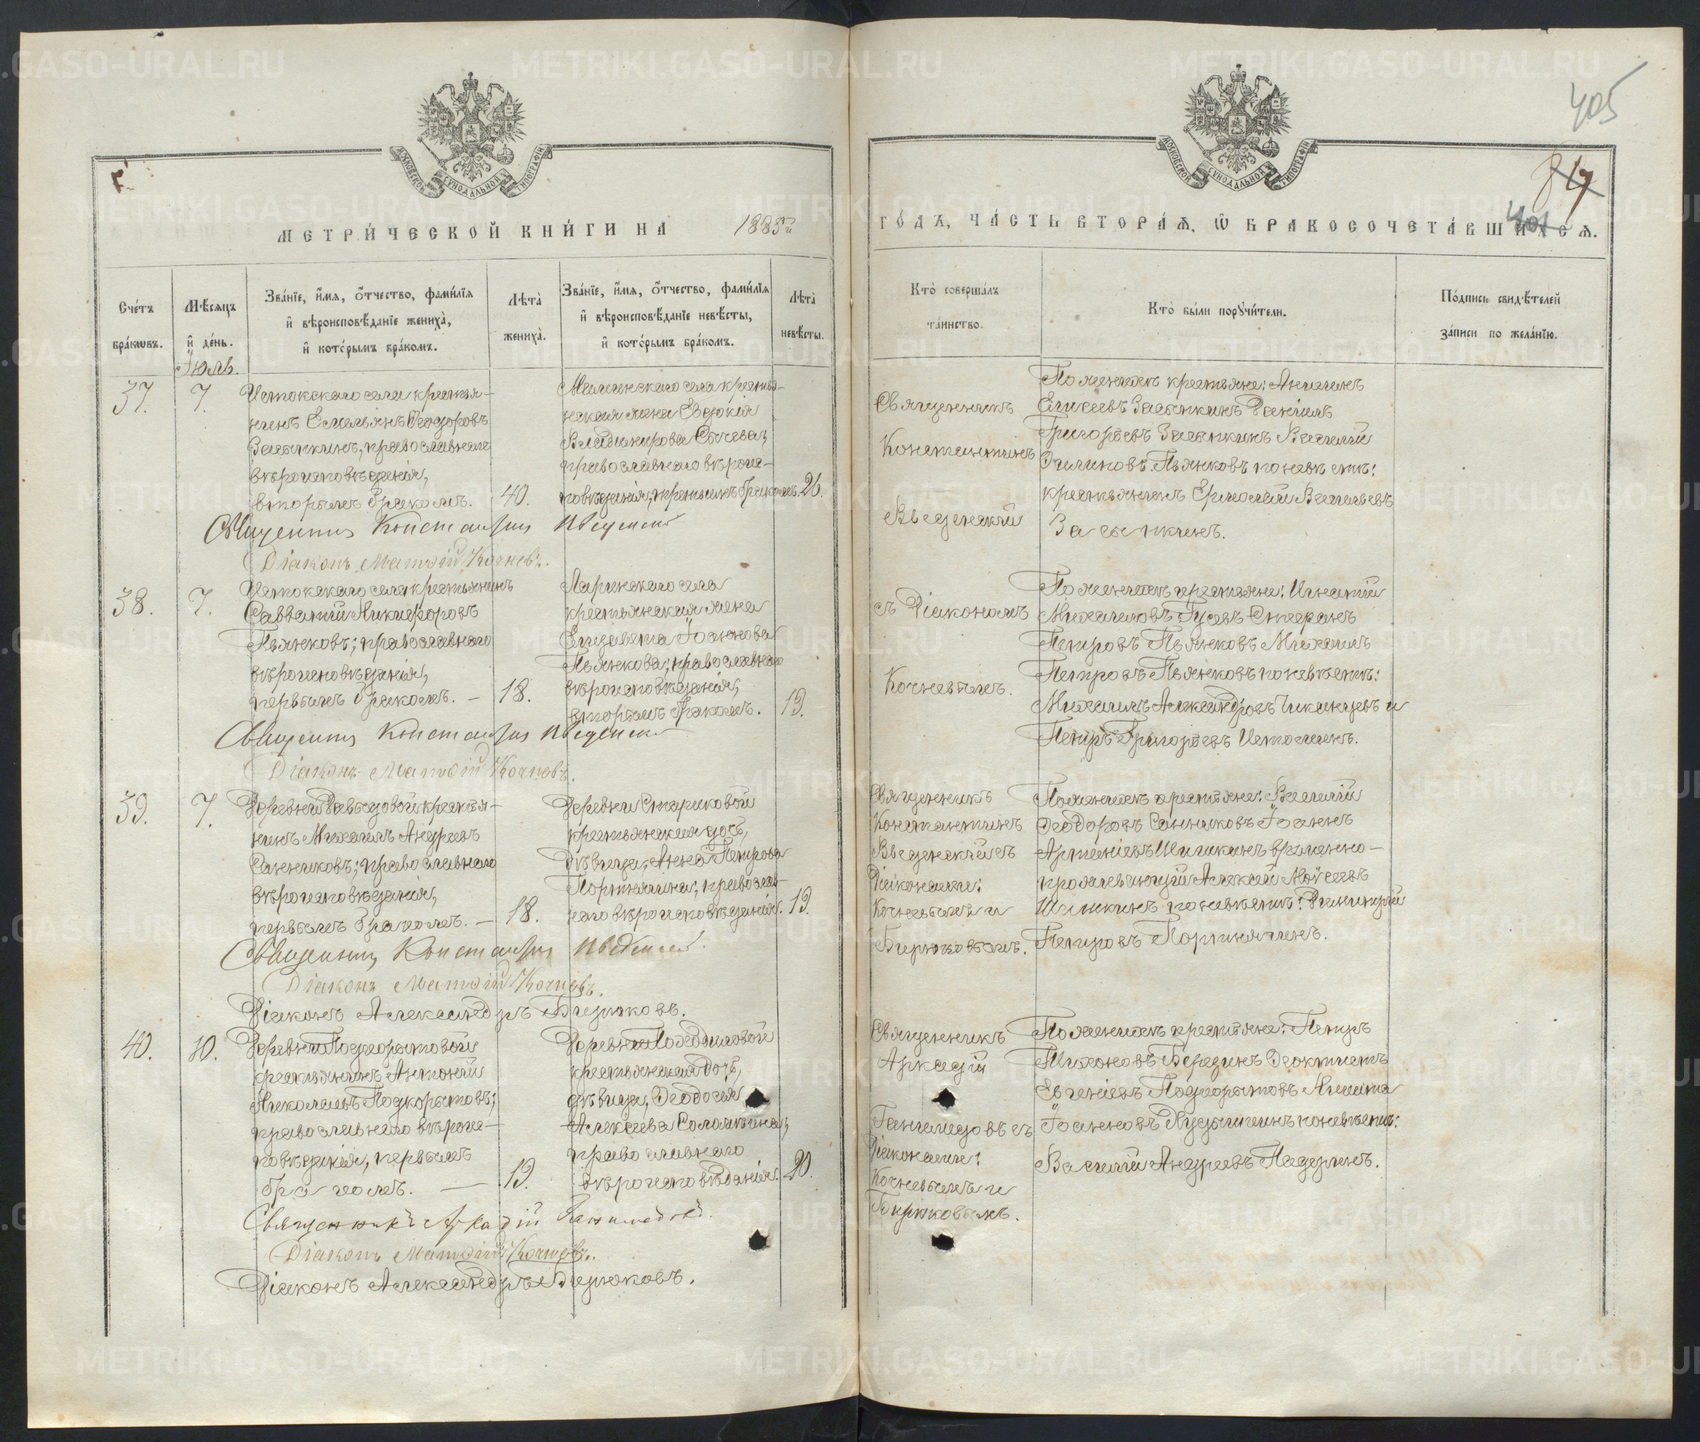 405
МОСКОВСКОЙ СѴНОДАЛЬНОЙ ТИПОГРАФІИ
МОСКОВСКОЙ СѴНОДАЛЬНОЙ ТИПОГРАФІИ
МЕТРИ́ЧЕСКОЙ КНИ́ГИ НА 1885й
ГО́ДЪ, ЧА́СТЬ ВТОРА́Я, Ѡ БРАКОСОЧЕТА́ВШИХСЯ.
401
Сче́тъ бра́кѡвъ.
Мѣ́сяцъ и҆ де́нь.
Зва́нїе, и҆́мя, ѻ҆́тчество, фами́лїя
и҆ вѣроисповѣ́данїе жениха̀,
и҆ кото́рымъ бра́комъ.
Лѣта̀ жениха̀.
Зва́нїе, и҆́мя, ѻ҆́тчество, фами́лїя
и҆ вѣроисповѣ́данїе невѣ́сты,
и҆ кото́рымъ бра́комъ.
Лѣта̀ невѣ́сты.
Кто̀ соверша́лъ та́инство.
Кто̀ бы́ли порꙋчи́тели.
По́дпись свидѣ́телей за́писи по жела́нїю.
Іюль.
37.
7.
Истокскаго села крестья-
нинъ Емельянъ Ѳеодоровъ
Засыпкинъ, православнаго
вѣроисповѣданія,
вторымъ бракомъ.
40.
крестьян-
ская жена Евдокія
Владимірова Сычева,
православнаго вѣроис-
повѣданія, третьимъ бракомъ.
26.
Священникъ
Константинъ
Введенскій
По женихѣ крестьяне:
Елисеевъ Засыпкинъ, Даніилъ
Григорьевъ Засыпкинъ, Василій
Пьянковъ; по невѣстѣ:
крестьянинъ Ермолай Васильевъ
Засыпкинъ.
Священникъ Константинъ Введенскій
Діаконъ Матѳій Кочневъ.
38.
7.
Истокскаго села крестьянинъ
Савватій Никифоровъ
Пьянковъ; православнаго
вѣроисповѣданія,
первымъ бракомъ. —
18.
Ларинскаго села
крестьянская жена
Елизавета Іоаннова
Пьянкова, православнаго
вѣроисповѣданія,
вторымъ бракомъ.
19.
съ Діакономъ
Кочневымъ.
По женихѣ крестьяне: Игнатій
Михайловъ Гусевъ, Стефанъ
Петровъ Пьянковъ, Михаилъ
Петровъ Пьянковъ; по невѣстѣ:
Михаилъ Александровъ и
Петръ Григорьевъ Истоминъ.
Священникъ Константинъ Введенскій
Діаконъ Матѳій Кочневъ.
39.
7.
Деревни Давыдовой крестья-
нинъ Михаилъ Андреевъ
Санниковъ; православнаго
вѣроисповѣданія,
первымъ бракомъ. —
18.
Деревни Стариковой
крестьянская дочь,
дѣвица, Анна Петрова
Портнягина; православ-
наго вѣроисповѣданія.
19.
Священникъ
Константинъ
Введенскій съ
Діаконами:
Кочневымъ и
Бирюковымъ.
По женихѣ крестьяне: Василій
Ѳеодоровъ Санниковъ, Іоаннъ
Артеміевъ Шишкинъ, временно-
проживающій Алексій Моѵсеевъ
Шишкинъ; по невѣстѣ: Димитрій
Петровъ Портнягинъ.
Священникъ Константинъ Введенскій.
Діаконъ Матѳій Кочневъ.
Діаконъ Александръ Бирюковъ.
40.
10.
Деревни Подкорытовой
крестьянинъ Антоній
Николаевъ Подкорытовъ;
православнаго вѣроис-
повѣданія, первымъ
бракомъ. —
19.
крестьянская дочь,
дѣвица, Ѳеодосія
Алексѣева Соломеина,
православнаго
вѣроисповѣданія.
20.
Священникъ
Аркадій
Ганимедовъ съ
Діаконами:
Кочневымъ и
Бирюковымъ.
По женихѣ крестьяне: Петръ
Тихоновъ Бердинъ, Ѳеоктистъ
Евгеніевъ Подкорытовъ, Никита
Іоанновъ; по невѣстѣ:
Василій Андреевъ Падеринъ.
Священникъ Аркадій Ганимедовъ.
Діаконъ Матѳій Кочневъ.
Діаконъ Александръ Бирюковъ.
METRIKI.GASO-URAL.RU